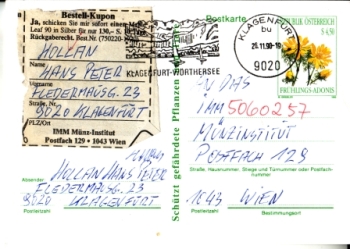 Bestell-Kupon
Ja, schicken Sie mir sofort einen Me
Leaf 90 in Silber für nur 130,– S. 10 Tage
Rückgaberecht. Best. Nr. (750220-
HOLLAN
Name
HANS PETER
Vorname
FLEDERMAUSG. 23
Straße, Nr.
9020 KLAGENFURT
PLZ/Ort
IMM Münz-Institut
Postfach 129 · 1043 Wien
Absender
HOLLAN HANS PETER
FLEDERMAUSG. 23
9020 KLAGENFURT
Postleitzahl
Schützt gefährdete Pflanzen
Postkarte
KLAGENFURT-WÖRTHERSEE
KLAGENFURT
bu
9020
REPUBLIK ÖSTERREICH
S 4,50
FRÜHLINGS-ADONIS
AN DAS
IMM 5060257
MÜNZINSTITUT
POSTFACH 129
Straße, Hausnummer, Stiege und Türnummer oder Postfach-
nummer
1043 WIEN
Postleitzahl Bestimmungsort